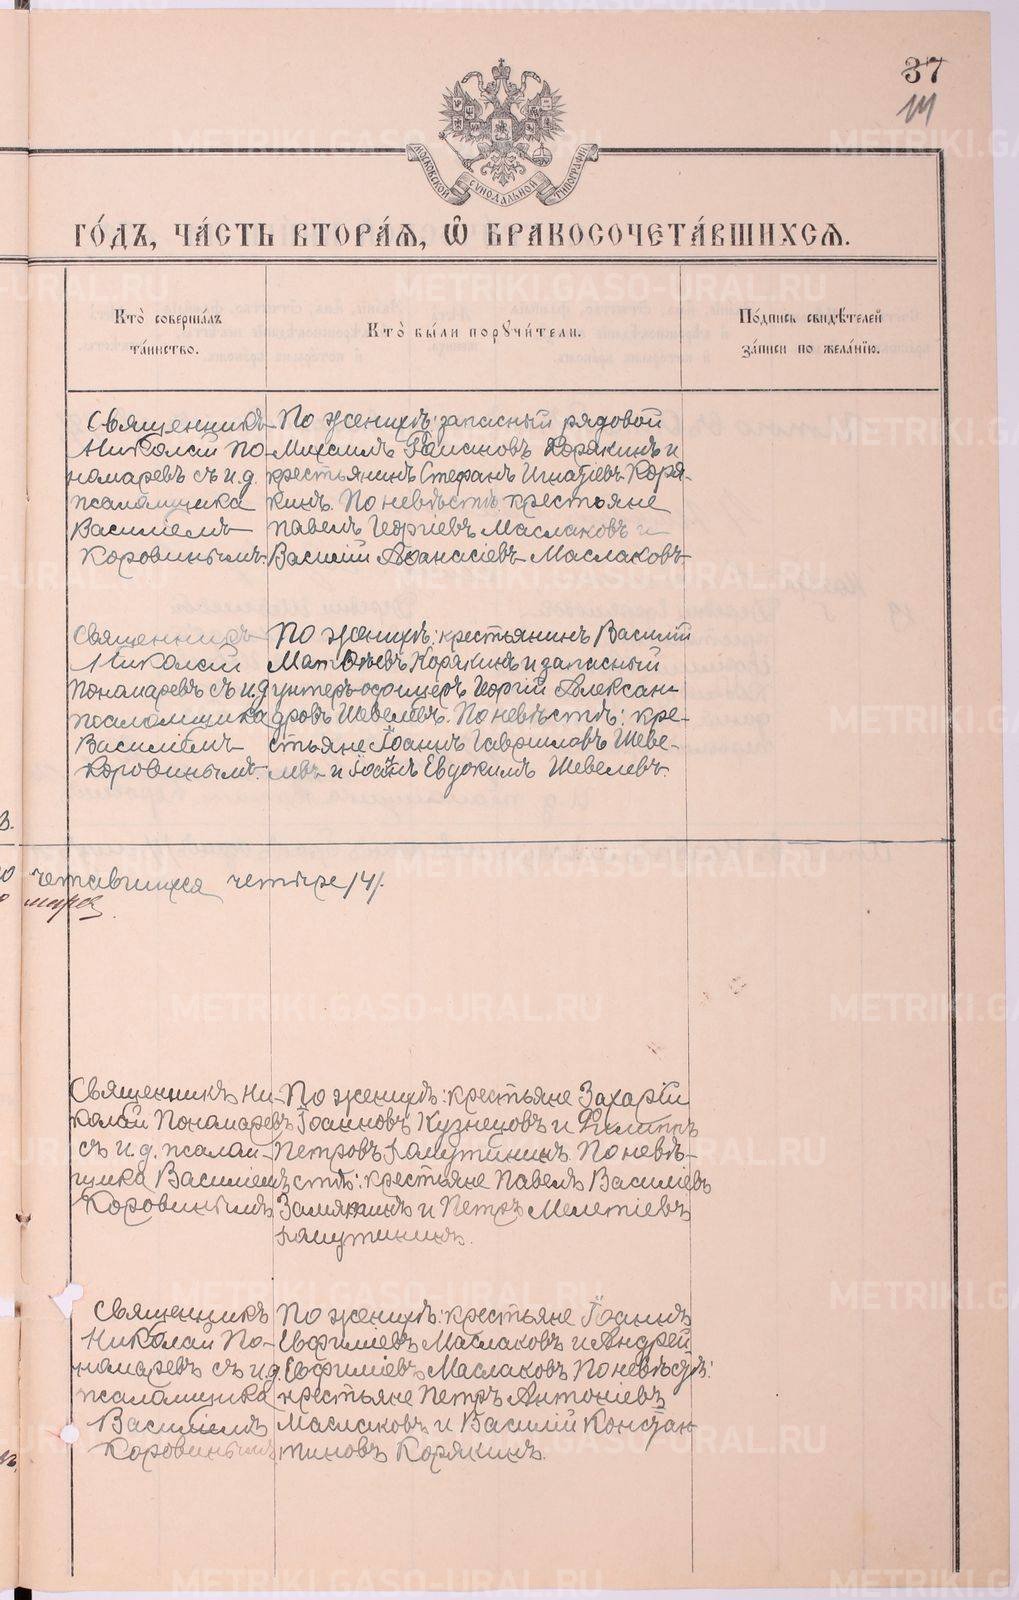 37
МОСКОВСКОЙ СѴНОДАЛЬНОЙ ТИПОГРАФІИ
ГО́ДЪ, ЧА́СТЬ ВТОРА́Я, Ѽ БРАКОСОЧЕТА́ВШИХСЯ.
Кто̀ соверша́лъ
та́инство.
Кто̀ бы́ли порꙋчи́тели.
По́дпись свидѣ́телей
за́писи по жела́нїю.
Священникъ
Николай По-
номаревъ съ и.д.
псаломщика
Василіемъ
Коровинымъ.
По женихѣ: запасный рядовой
Михаилъ Корякинъ и
крестьянинъ Стефанъ Игнатіевъ Коря-
кинъ. По невѣстѣ: крестьяне
Павелъ Георгіевъ Маслаковъ и
Василій Аѳанасіевъ Маслаковъ
Священникъ
Николай
Пономаревъ съ и.д
псаломщика
Василіемъ
Коровинымъ.
По женихѣ: крестьянинъ Василій
Матѳѣевъ Корякинъ и запасный
унтеръ-офицеръ Георгій Алексан-
дровъ Шевелевъ. По невѣстѣ: кре-
стьяне Іоаннъ Гавриловъ Шеве-
левъ и Іоаннъ Евдокимъ Шевелевъ.
четавшихся четыре /4/.
Священникъ Ни-
колай Пономаревъ
съ и.д. псалом-
щика Василіемъ
Коровинымъ
По женихѣ: крестьяне Захарій
Іоанновъ Кузнецовъ и Филиппъ
Петровъ По невѣ-
стѣ: крестьяне Павелъ Василіевъ
и Петръ Мелетіевъ
Священникъ
Николай По-
номаревъ съ и.д.
псаломщика
Василіемъ
Коровинымъ
По женихѣ: крестьяне Іоаннъ
Евфиміевъ Маслаковъ и Андрей
Евфиміевъ Маслаковъ По невѣстѣ:
крестьяне Петръ Антоніевъ
Маслаковъ и Василій Констан-
тиновъ Корякинъ.
METRIKI.GASO-URAL.RU